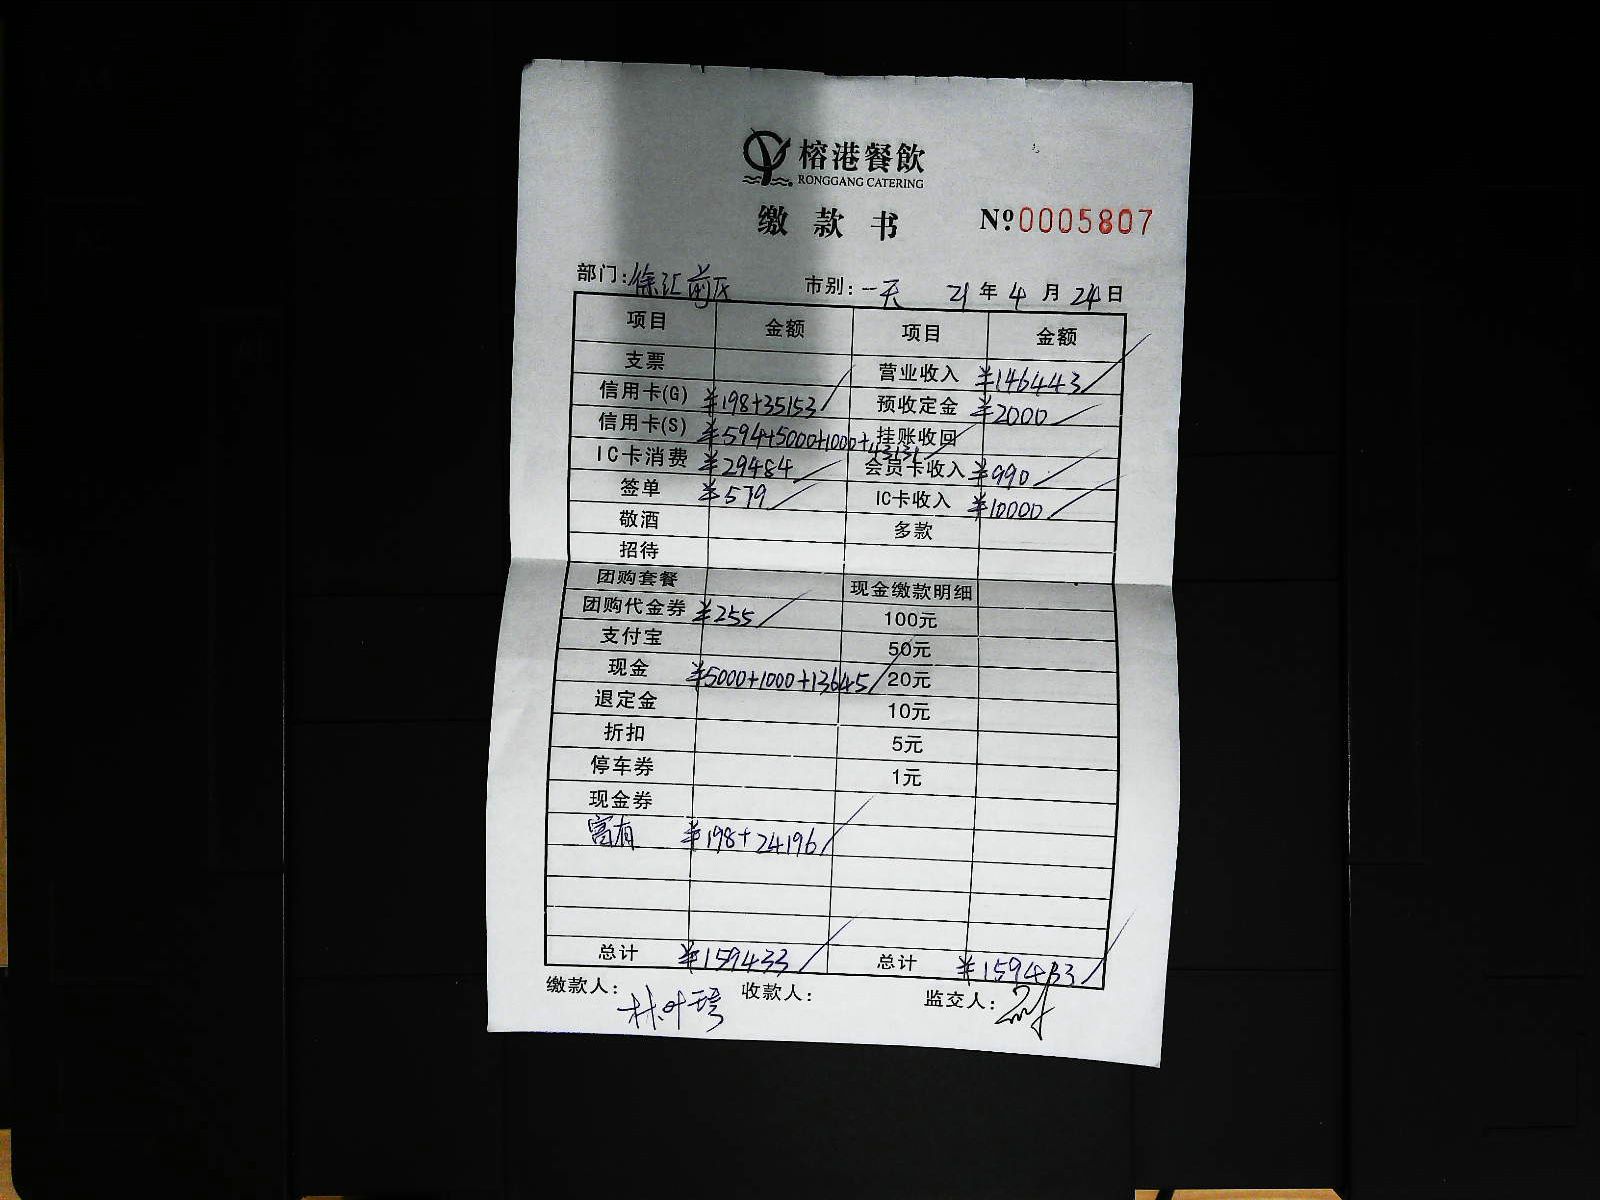 榕港餐飲
RONGGANG CATERING
缴款书 Nº:0005807
部门:徐汇前厅 市别:一天 21年4月24日
项目 金额 项目 金额
支票 营业收入 ¥146443
信用卡(G) ¥198+35153 预收定金 ¥2000
信用卡(S) ¥594+5000+1000+43131 挂账收回
IC卡消费 ¥29484 会员卡收入 ¥990
签单 ¥579 IC卡收入 ¥10000
敬酒 多款
招待
团购套餐 现金缴款明细
团购代金券 ¥255 100元
支付宝 50元
现金 ¥5000+1000+13645 20元
退定金 10元
折扣 5元
停车券 1元
现金券
富有 ¥198+24196
总计 ¥159433 总计 ¥159433
缴款人: 收款人: 监交人: